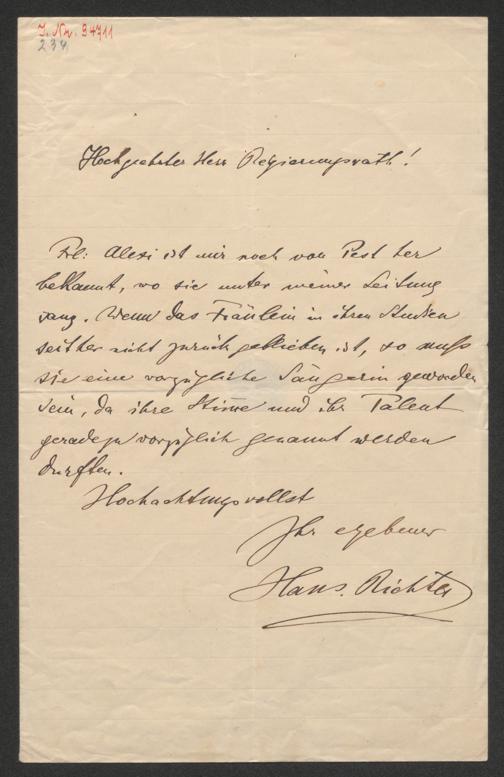 J. Nr. 34711
234
Hochgeehrter Herr Regierungsrath!
Frl: Alexi ist mir noch von Pest her
bekannt, wo sie unter meiner Leitung
sang. Wenn das Fräulein in ihren Studien
seither nicht zurückgeblieben ist, so muß
sie eine vorzügliche Sängerin geworden
sein, da ihre Stim̄e und ihr Talent
geradezu vorzüglich genannt werden
durften.
Hochachtungsvollst
Ihr ergebener
Hans. Richter